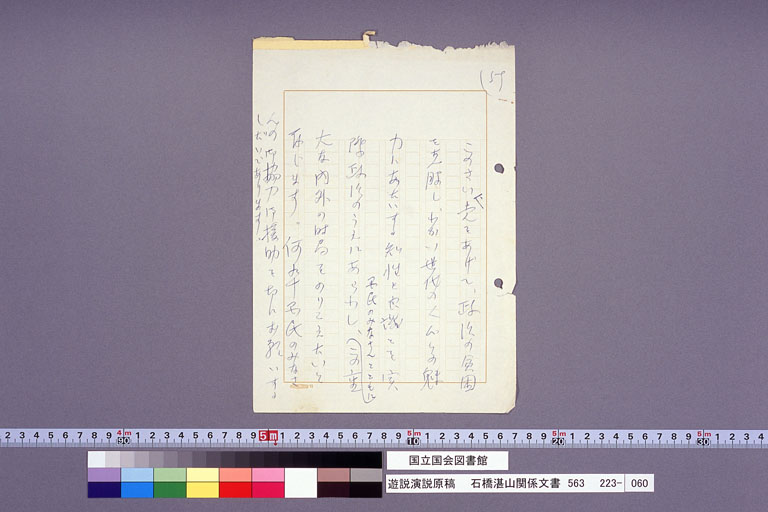 このさい党をあげて、政治の貧困
を克服し、わかい世代の人々の魅
力にあたいする知性と良識とを実
際政治のうえにあらわし、この重
国民のみなさんとともに
大な内外の時局をのりこえたいと
存じます。何れ国民のみなさ
んの御協力御援助をお願いする
しだいであります。
国立国会図書館
遊説演説原稿 石橋湛山関係文書 563 223- 060